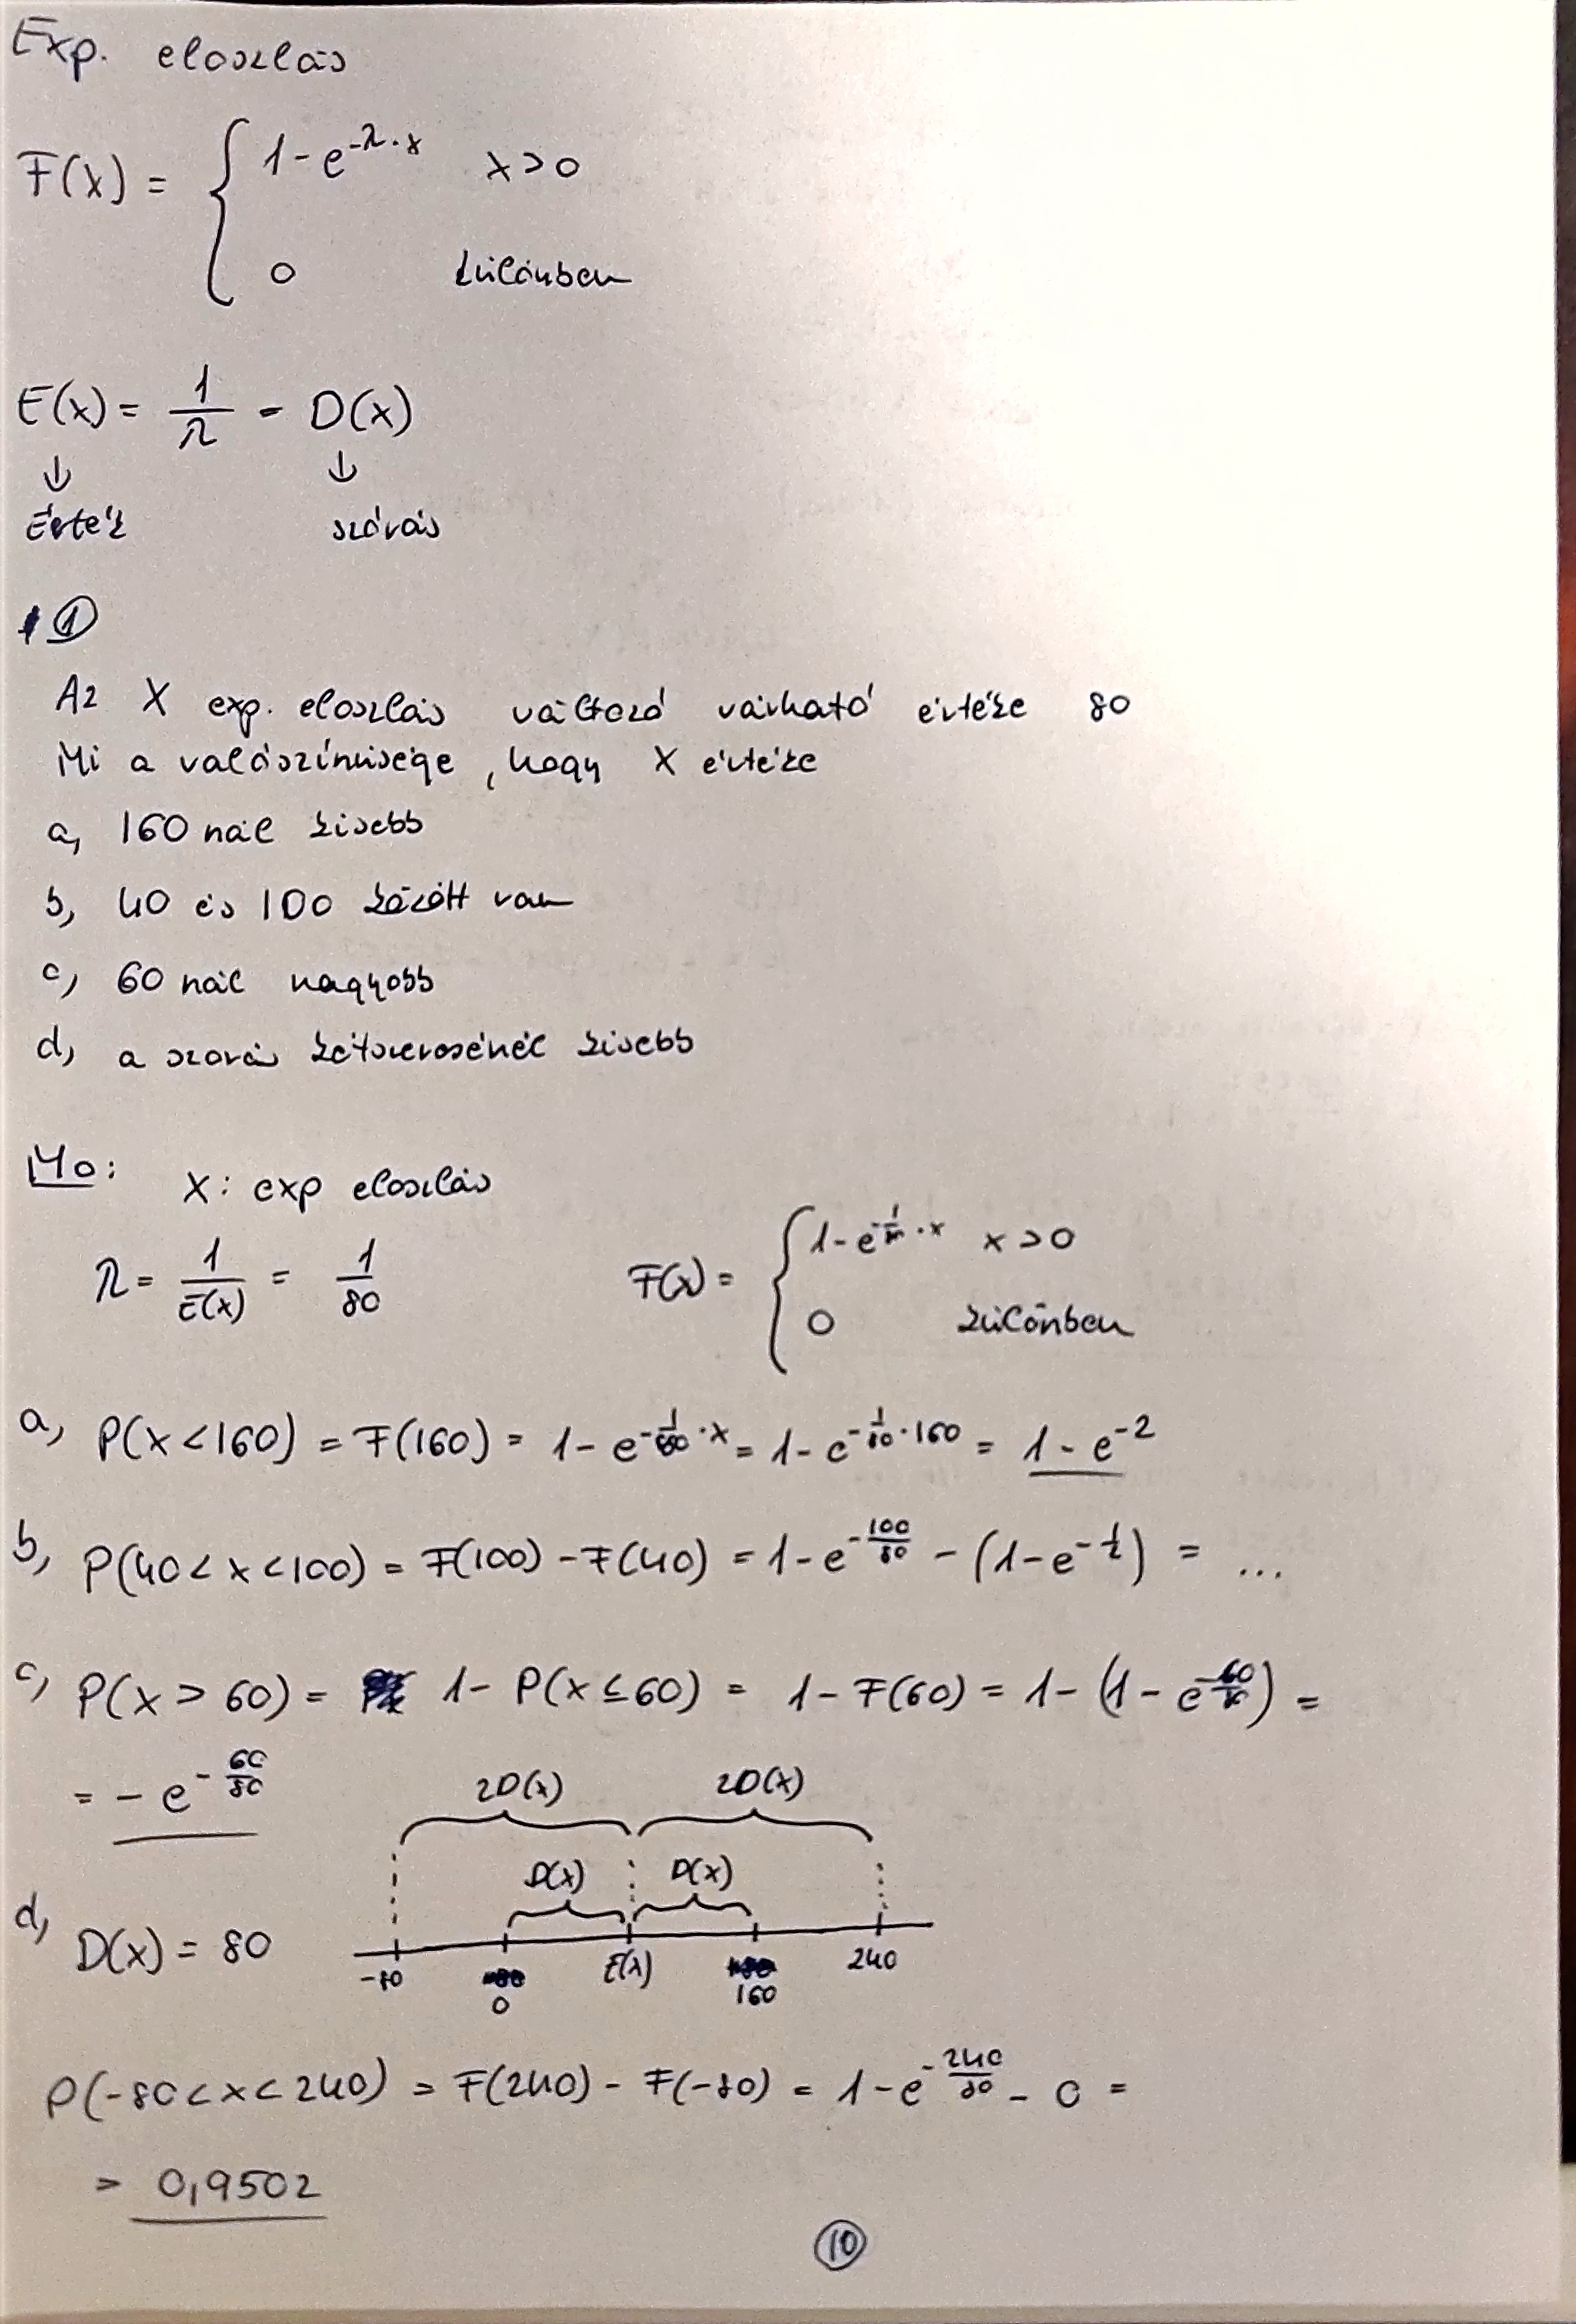 Exp. eloszlás
F(x) = { 1-e^{-λ·x} x>0
0 különben
E(x) = 1/λ = D(x)
↓ ↓
Érték szórás
①
Az X exp. eloszlás változó várható értéke 80
Mi a valószínűsége, hogy X értéke
a, 160 nál kisebb
b, 40 és 100 között van
c, 60 nál nagyobb
d, a szorás kétszeresénél kisebb
Mo: X: exp eloszlás
λ = 1/E(x) = 1/80 F(x) = { 1-e^{-1/80·x} x>0
0 különben
a, P(x<160) = F(160) = 1-e^{-1/80·x} = 1-e^{-1/80·160} = 1-e^{-2}
b, P(40<x<100) = F(100) - F(40) = 1-e^{-100/80} - (1-e^{-1/2}) = ...
c, P(x>60) = 1-P(x≤60) = 1-F(60) = 1-(1-e^{-60/80}) =
= -e^{-60/80}
2D(x) 2D(x)
D(x) D(x)
d, D(x) = 80
-80 0 E(x) 160 240
P(-80<x<240) = F(240) - F(-80) = 1-e^{-240/80} - 0 =
= 0,9502
⑩